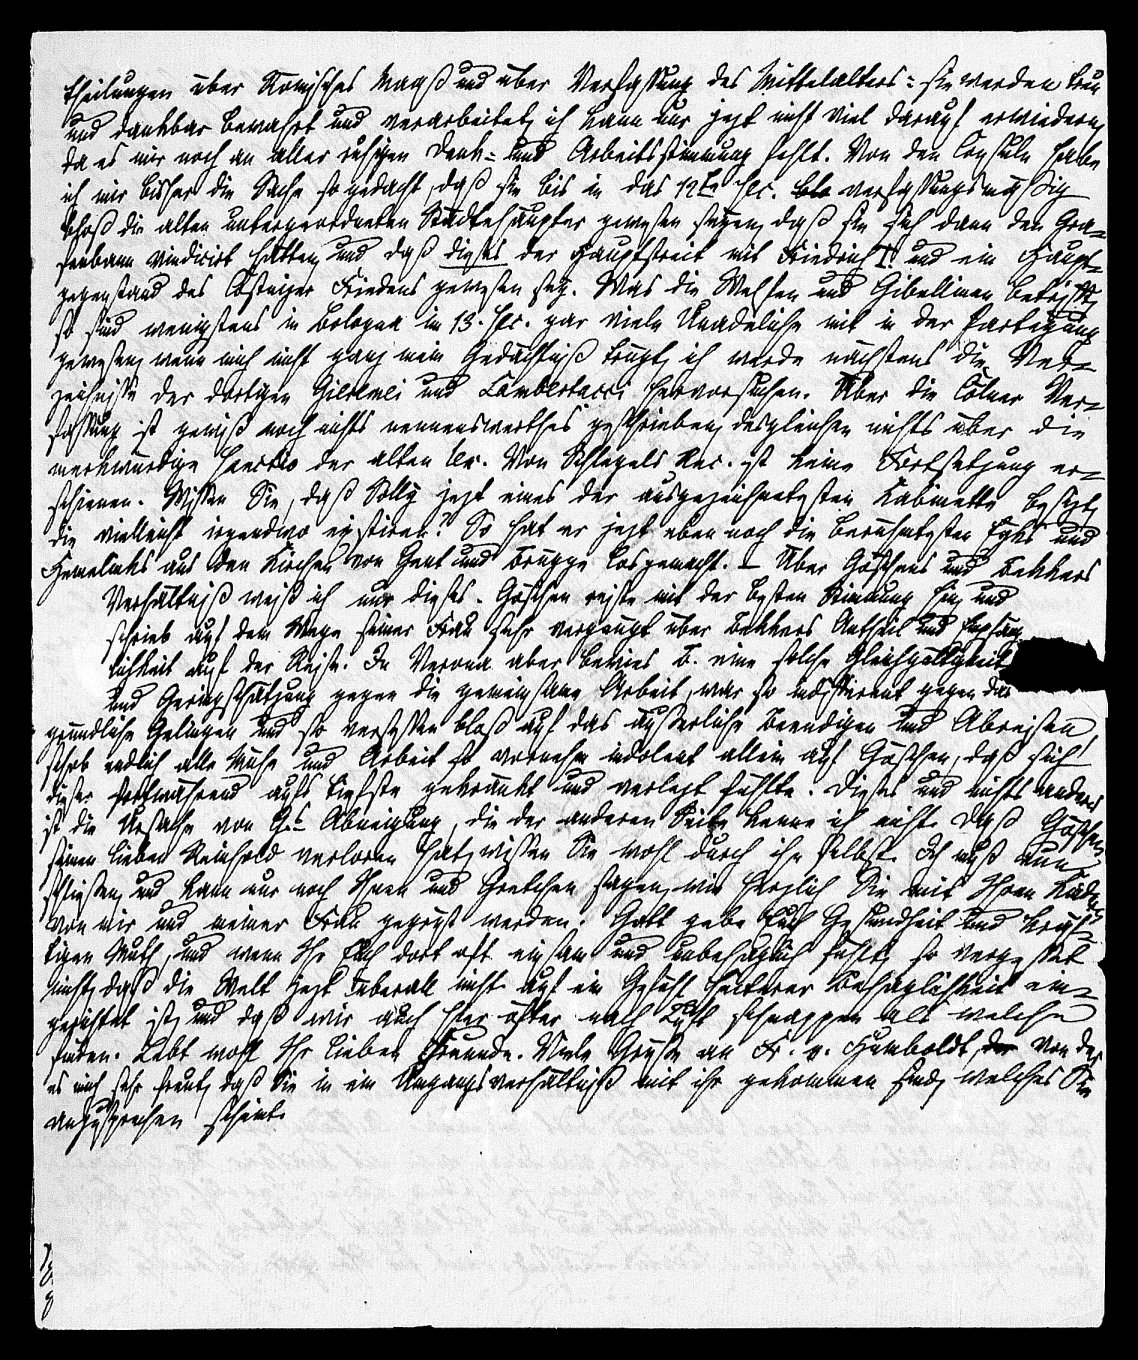 theilungen über Römisches Maaß und über Verfassung des Mittelalters: sie werden treu
und dankbar bewahrt und verarbeitet, ich kann nur jezt nicht viel darauf erwiedern,
da es mir noch an aller ruhigen Denk- und Arbeitsstimmung fehlt. Von den Consuln habe
ich mir bisher die Sache so gedacht, daß sie bis in das 12te Sec. verfassungsmäßig
bloß die alten untergeordneten Städtehäupter gewesen seyen, daß sie sich dann den Gra-
fenbann vindicirt hätten, und daß dieses der Hauptstreit mit Friedrich I. und ein Haupt-
gegenstand des Costnizer Friedens gewesen sey. Was die Welfen und Gibellinen betrifft,
so sind wenigstens in Bologna im 13. Sec. gar viele Unadeliche mit in der Partheyung
gewesen, wenn mich nicht ganz mein Gedächtniß trügt, ich werde nächstens die Ver-
zeichnisse der dortigen Gieremei und Lambertacci hervorsuchen. Über die Cölner Ver-
fassung ist gewiß noch nichts nennenswerthes geschrieben, desgleichen nichts über die
merkwürdige der alten Von Schlegels Rec. ist keine Fortsetzung er-
schienen. Wissen Sie, daß Solly jezt eines der ausgezeichnetesten Kabinette besizt,
die vielleicht irgendwo existiren? So hat er jezt eben noch die berühmtesten Eyks und
Hemelinks aus den Kirchen von Gent und Brügge losgemacht. – Über Göschens und Bekkers
Verhältniß weiß ich nur dieses. Göschen reiste mit der besten Stimmung hin, und
schrieb auf dem Wege seiner Frau sehr vergnügt über Bekkers Antheil und Empfäng
lichkeit auf der Reise. In Verona aber bewies B. eine solche Gleichgültigkeit
und Geringschätzung gegen die gemeinsame Arbeit, war so indifferent gegen das
gründliche Gelingen und so versessen bloß auf das äußerliche Beendigen und Abreisen,
schob endlich alle Mühe und Arbeit so vornehm indolent allein auf Göschen, daß sich
dieser fortwährend aufs tiefste gekränkt und verlezt fühlte. Dieses und nichts anders
ist die Ursache von G.s Abneigung, die der anderen Seite kenne ich nicht. Daß Göschen
seinen lieben Reinhold verloren hat, wissen Sie wohl durch ihn selbst. Ich muß nun
schließen, und kann nur noch Ihnen und Gretchen sagen, wie herzlich Sie mit Ihren Kindern
von mir und meiner Frau gegrüßt werden. Gott gebe Euch Gesundheit und kräf-
tigen Muth, und wenn Ihr Euch dort oft einsam und unbehaglich fühlt, so vergesset
nicht, daß die Welt jezt überall nicht auf ein Gefühl heiterer Behaglichkeit ein-
gerichtet ist, und daß wir auch hier öfter nach Luft schnappen als welche
finden. Lebt wohl Ihr lieben Freunde. Viele Grüße an Fr. v. Humboldt, von der
es mich sehr freut, daß Sie in ein Umgangsverhältniß mit ihr gekommen sind, welches Sie
anzusprechen scheint.